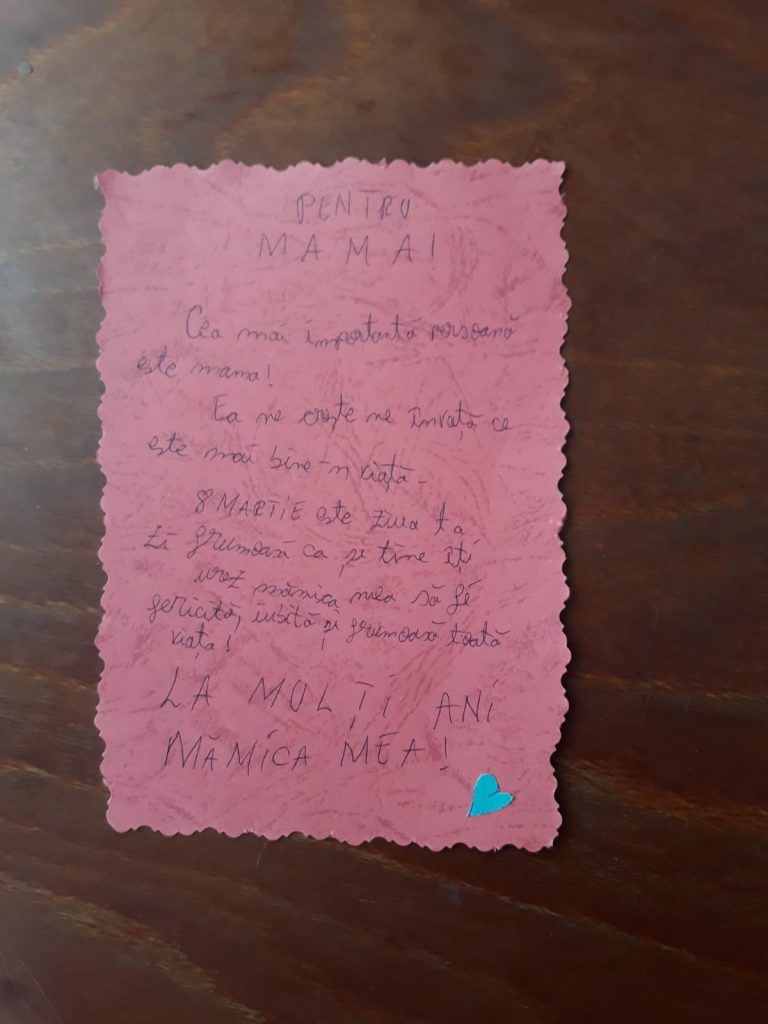 PENTRU
MAMA!
Cea mai importantă persoană
este mama!
Ea ne crește ne învață ce
este mai bine-n viață-
8 MARTIE este ziua ta
Zi frumoasă ca și tine îți
urez mămica mea să fi
fericită, iubită și frumoasă toată
viața!
LA MULȚI ANI
MĂMICA MEA!